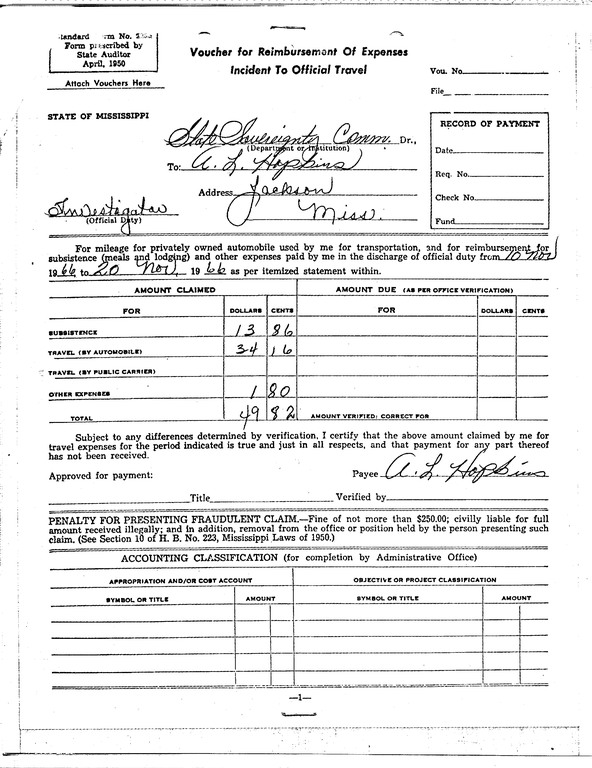 Form prescribed by
State Auditor
April, 1950
Attach Vouchers Here
Voucher for Reimbursement Of Expenses
Incident To Official Travel
Vou. No.
File
STATE OF MISSISSIPPI
State Sovereignty Comm. Dr.,
(Department or Institution)
To: A. L. Hopkins
Address Jackson
Miss.
Investigator
(Official Duty)
RECORD OF PAYMENT
Date
Req. No.
Check No.
Fund
For mileage for privately owned automobile used by me for transportation, and for reimbursement for
subsistence (meals and lodging) and other expenses paid by me in the discharge of official duty from 10 Nov
1966 to 20 Nov, 1966 as per itemized statement within.
AMOUNT CLAIMED AMOUNT DUE (AS PER OFFICE VERIFICATION)
FOR DOLLARS CENTS FOR DOLLARS CENTS
SUBSISTENCE 13 86
TRAVEL (BY AUTOMOBILE) 34 16
TRAVEL (BY PUBLIC CARRIER)
OTHER EXPENSES 1 80
TOTAL 49 82 AMOUNT VERIFIED: CORRECT FOR
Subject to any differences determined by verification, I certify that the above amount claimed by me for
travel expenses for the period indicated is true and just in all respects, and that payment for any part thereof
has not been received.
Approved for payment: Payee A. L. Hopkins
Title Verified by
PENALTY FOR PRESENTING FRAUDULENT CLAIM.—Fine of not more than $250.00; civilly liable for full
amount received illegally; and in addition, removal from the office or position held by the person presenting such
claim. (See Section 10 of H. B. No. 223, Mississippi Laws of 1950.)
ACCOUNTING CLASSIFICATION (for completion by Administrative Office)
APPROPRIATION AND/OR COST ACCOUNT OBJECTIVE OR PROJECT CLASSIFICATION
SYMBOL OR TITLE AMOUNT SYMBOL OR TITLE AMOUNT
—1—